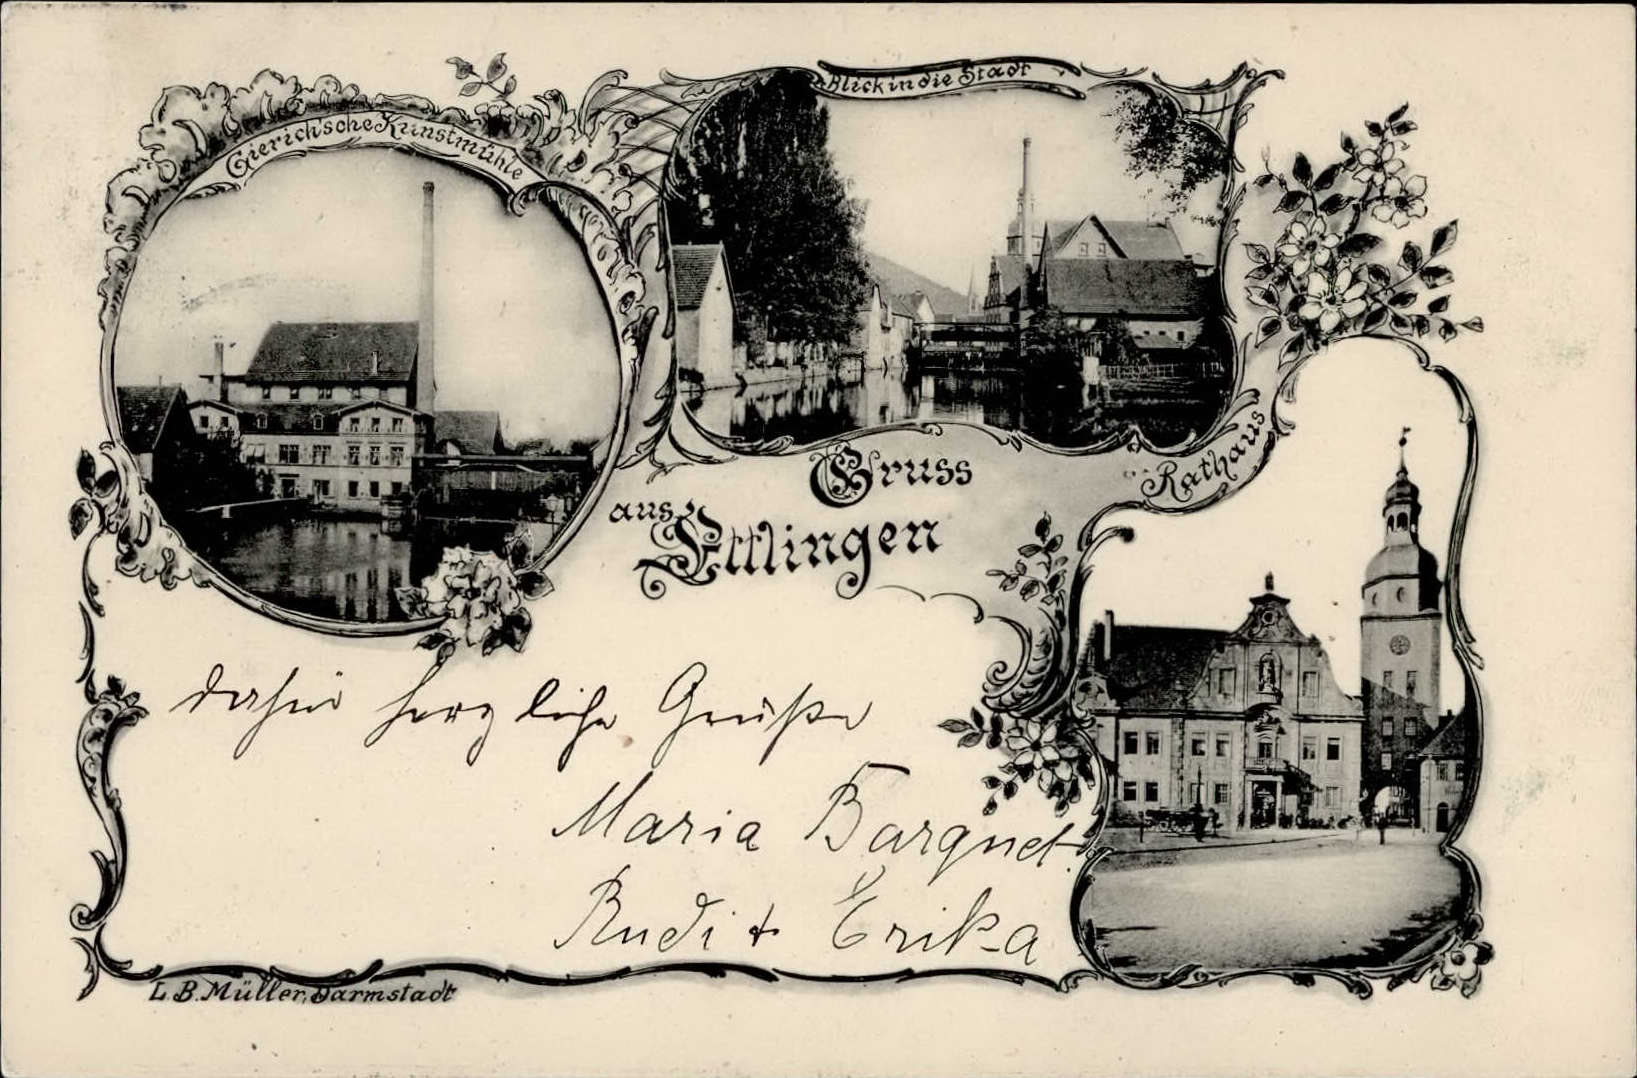 Gierich'sche Kunstmühle
Blick in die Stadt
Rathaus
Gruss
aus Ettlingen
herzliche Grüße
Maria Barquet.
Rudi + Erika
L. B. Müller, Darmstadt